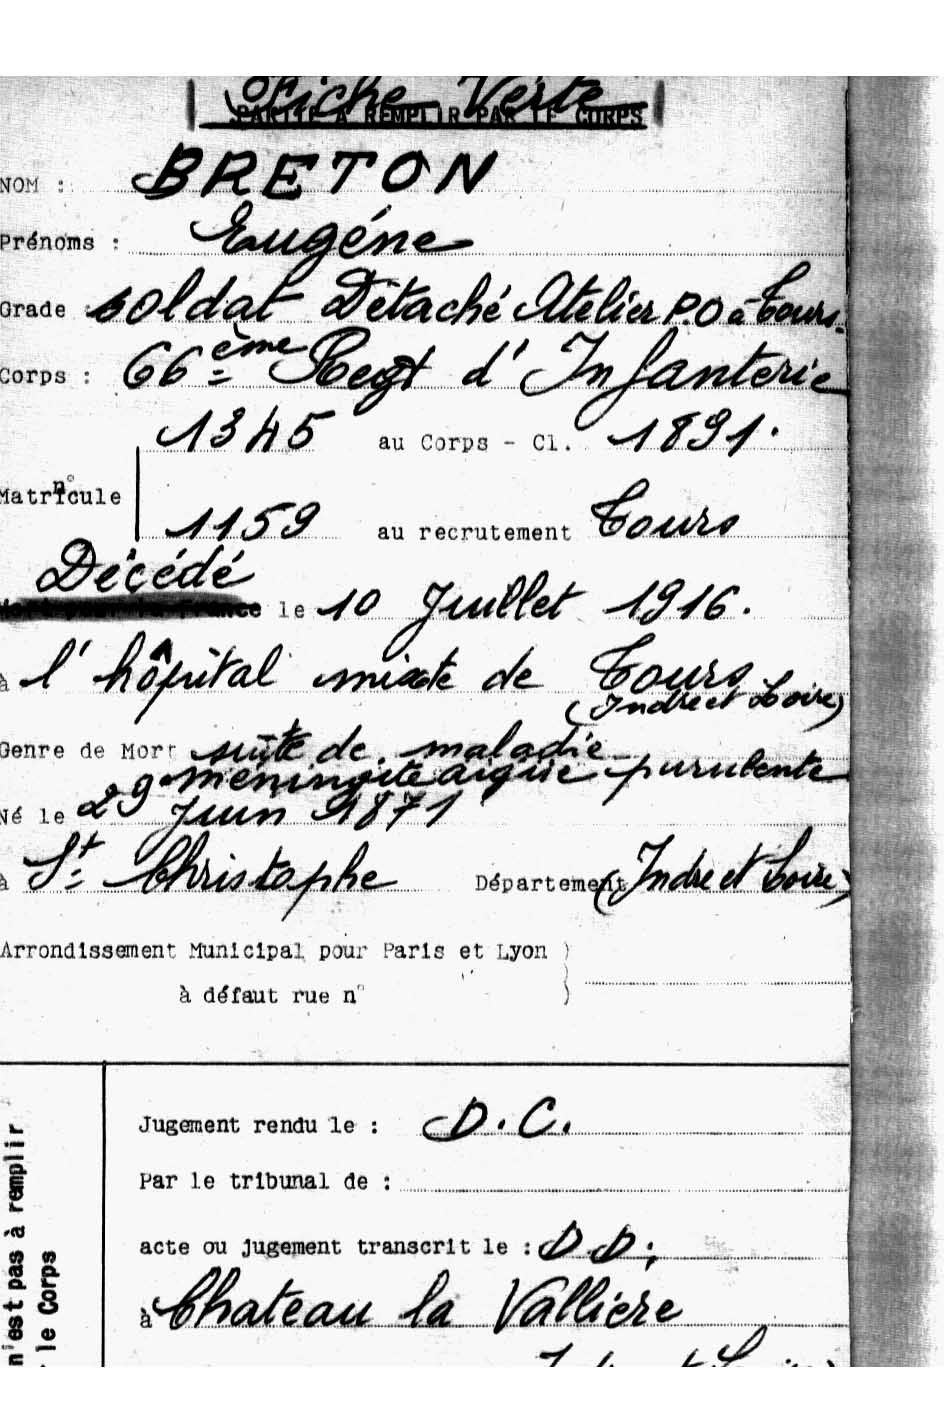 Fiche Verte
PARTIE A REMPLIR PAR LE CORPS
NOM : BRETON
Prénoms : Eugéne
Grade : Soldat Détaché Atelier P.O à Tours.
Corps : 66ème Regt d'Infanterie
1345 au Corps - Cl. 1891.
n°
Matricule
1159 au recrutement Tours
Décédé
Mort pour la France le 10 Juillet 1916.
à l'hôpital mixte de Tours
(Indre et Loire)
Genre de Mort suite de maladie
méningite aigüe purulente
Né le 29 Juin 1871
à St Christophe Département (Indre et Loire)
Arrondissement Municipal pour Paris et Lyon )
à défaut rue n° )
Jugement rendu le : D.C.
Par le tribunal de :
acte ou jugement transcrit le : D.D.
à Chateau la Valliere
Indre et Loire)
n'est pas à remplir
le Corps